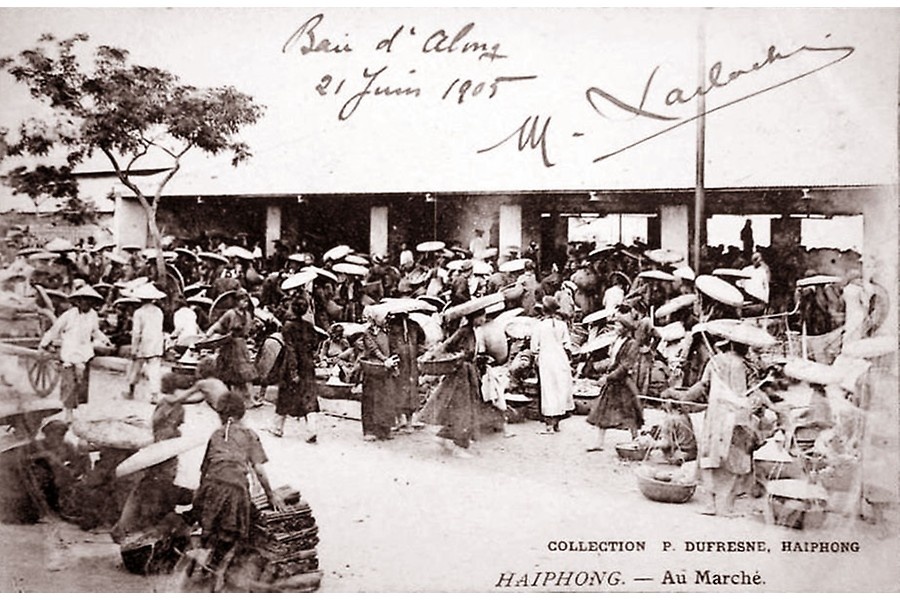 Baie d'Along
21 Juin 1905
M -
COLLECTION P. DUFRESNE, HAIPHONG
HAIPHONG. — Au Marché.